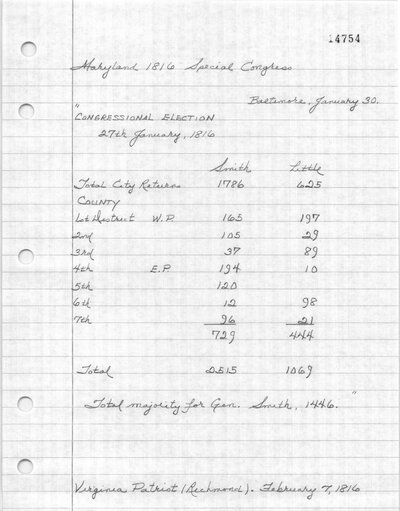 14754
Maryland 1816 Special Congress
Baltimore, January 30.
"
CONGRESSIONAL ELECTION
27th January, 1816
Smith Little
Total City Returns 1786 625
COUNTY
1st District W.P. 165 197
2nd 105 29
3rd 37 89
4th E.P. 194 10
5th 120
6th 12 98
7th 96 21
729 444
Total 2515 1069
Total majority for Gen. Smith, 1446. "
Virginia Patriot (Richmond). February 7, 1816